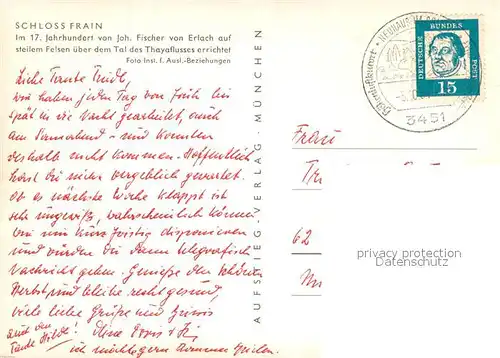 SCHLOSS FRAIN
Im 17. Jahrhundert von Joh. Fischer von Erlach auf
steilem Felsen über dem Tal des Thayaflusses errichtet
Foto Inst. f. Ausl.-Beziehungen
Liebe Tante Trudl,
wir haben jeden Tag von früh bis
spät in die Nacht gearbeitet, auch
am Sonnabend – und konnten
deshalb nicht kommen. Hoffentlich
hast Du nicht vergeblich gewartet.
Ob es nächste Woche klappt ist
sehr ungewiß, wahrscheinlich können
wir nur kurzfristig disponieren
und würden Dir dann telegrafisch
Nachricht geben. Genieße den schönen
Herbst, und bleibe recht gesund,
viele liebe Grüße und
auch den Deine Doris +
Tante Hilde!
AUFSTIEG-VERLAG · MÜNCHEN
DEUTSCHE BUNDESPOST
15
NEUHAUS
3451
Frau
62
privacy protection
Datenschutz